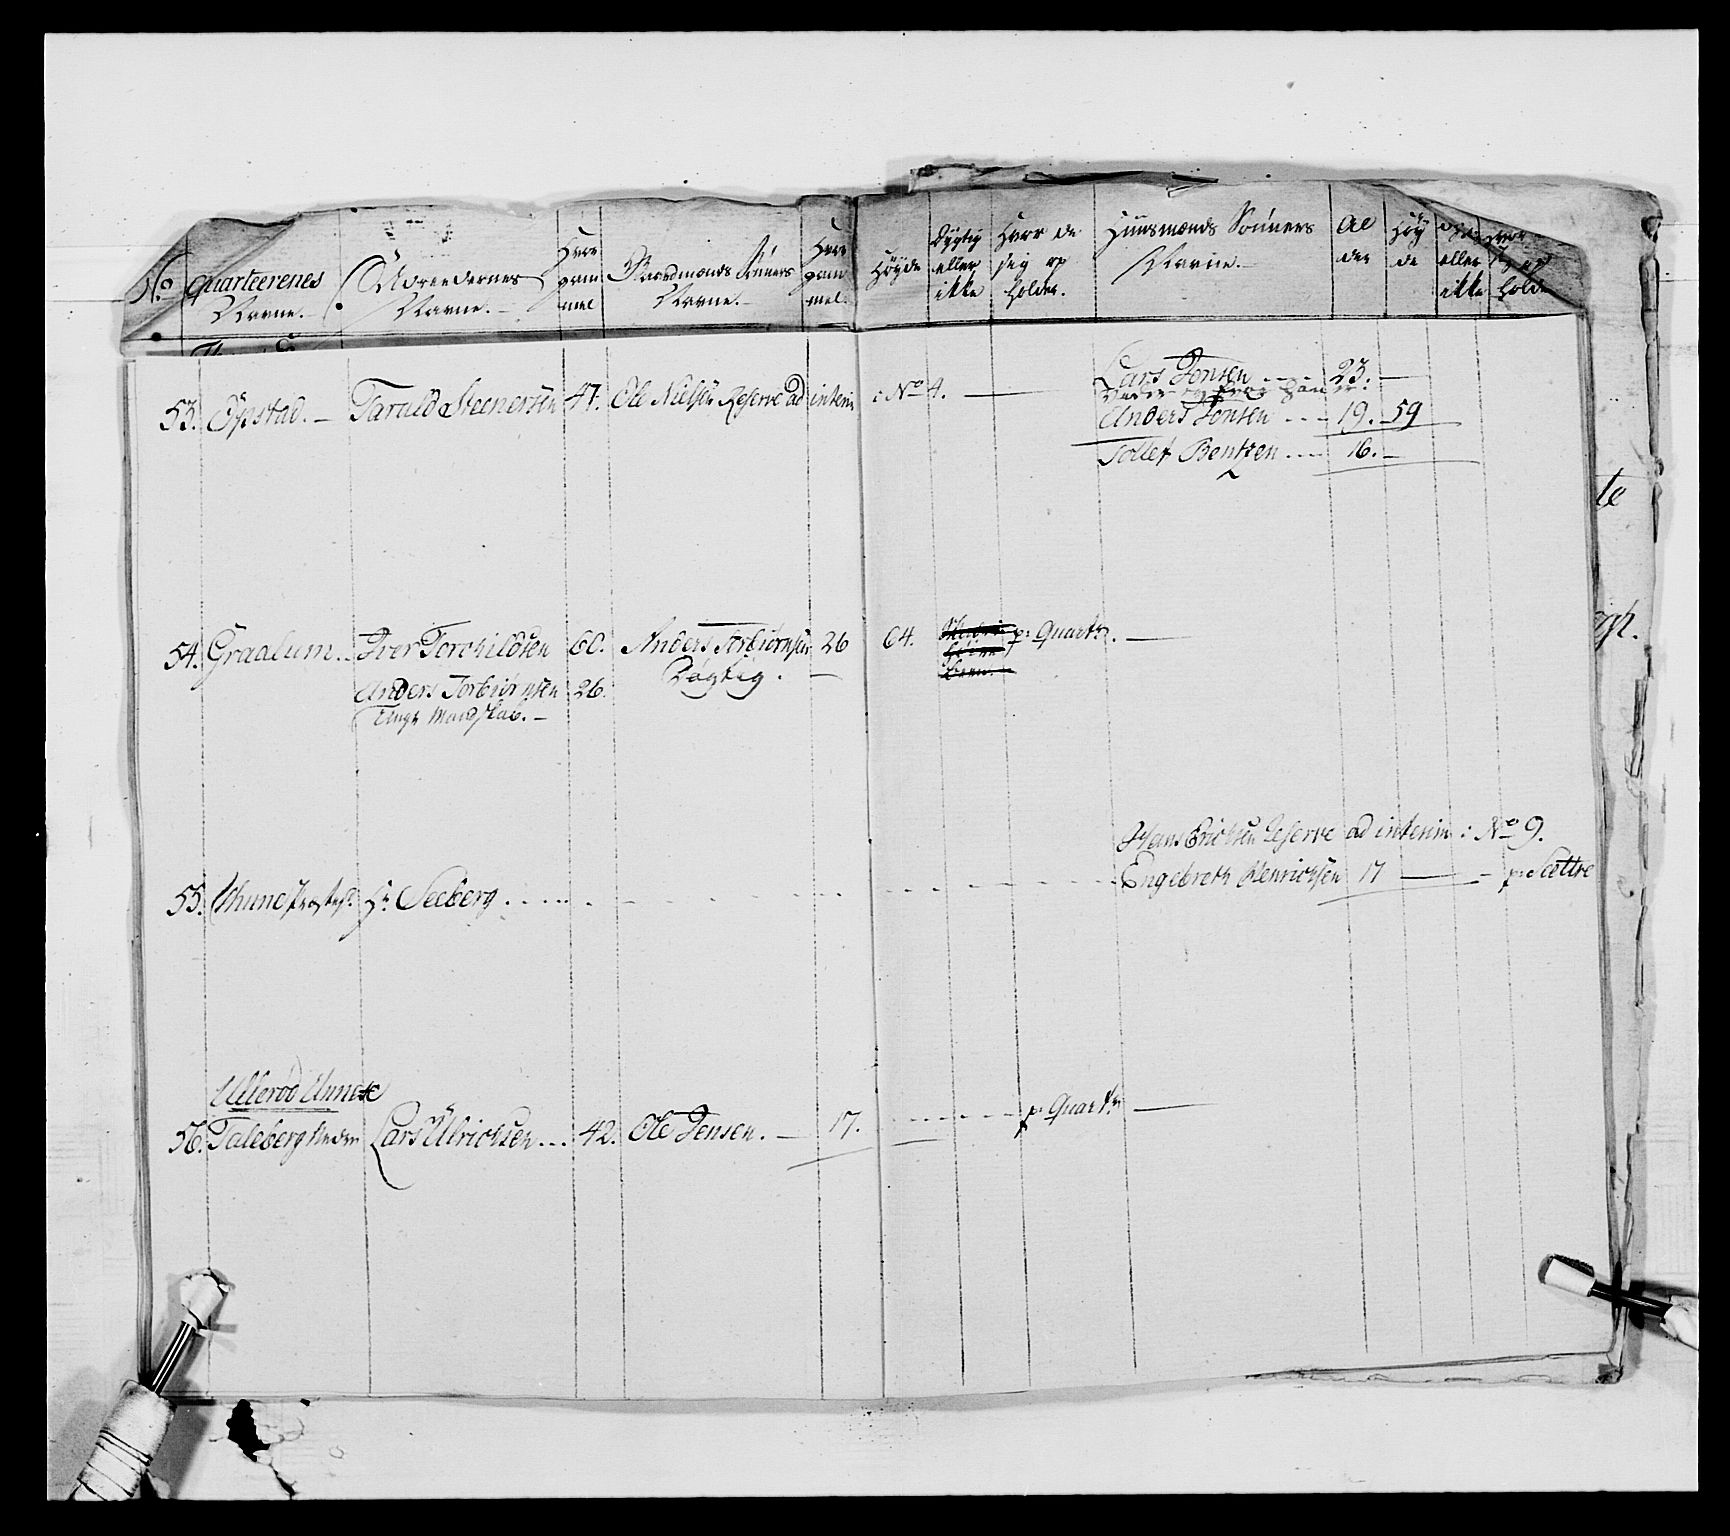 No quarteerenes Navne. Opsiddernes Navne. Hvor gammel Gaardmands Sønners Navne. Hvor gammel. Høyde Dygtig eller ikke Hvor de sig op holder. Huusmænds Sønners Navne. Alder Høyde eller ikke hvor op holder
53. Opstad. Taruld Steenersen 47. Ole Nielsen Reserve ad interim : No 4. — Lars Jonsen 23. —
Anders Jonsen --- 19. 59
Tollef Bentsen --- 16. —
54. Graalum. Iver Torchildsen 60. Anders Torbiørnsen 26 64. p: Quart: —
Anders Torbiørnsen 26. Døgtig. —
Ungt Mandskab. —
Hans Erichsen Reserve ad interim : No 9.
Engebreth Henrichsen 17 — p:
55. Thune Præstegr. Hr. Seeberg
Ullerød Annex
56. Taleberg Neder Lars Ulrichsen --- 42. Ole Jensen. — 17. p: Quart: —
te